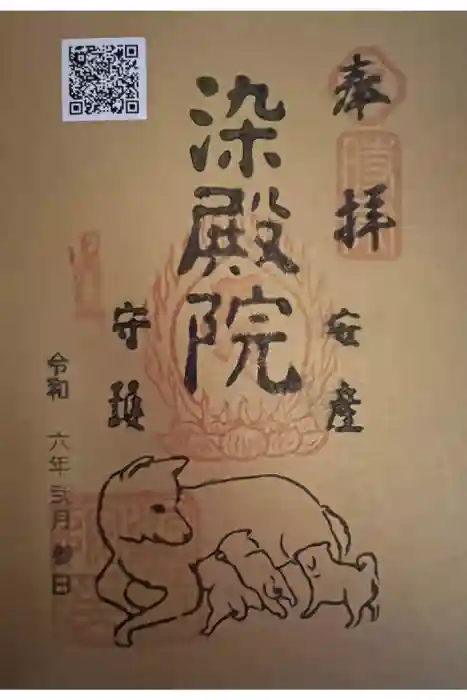 奉拝
安産
染殿院
守護
令和 六年弐月 日